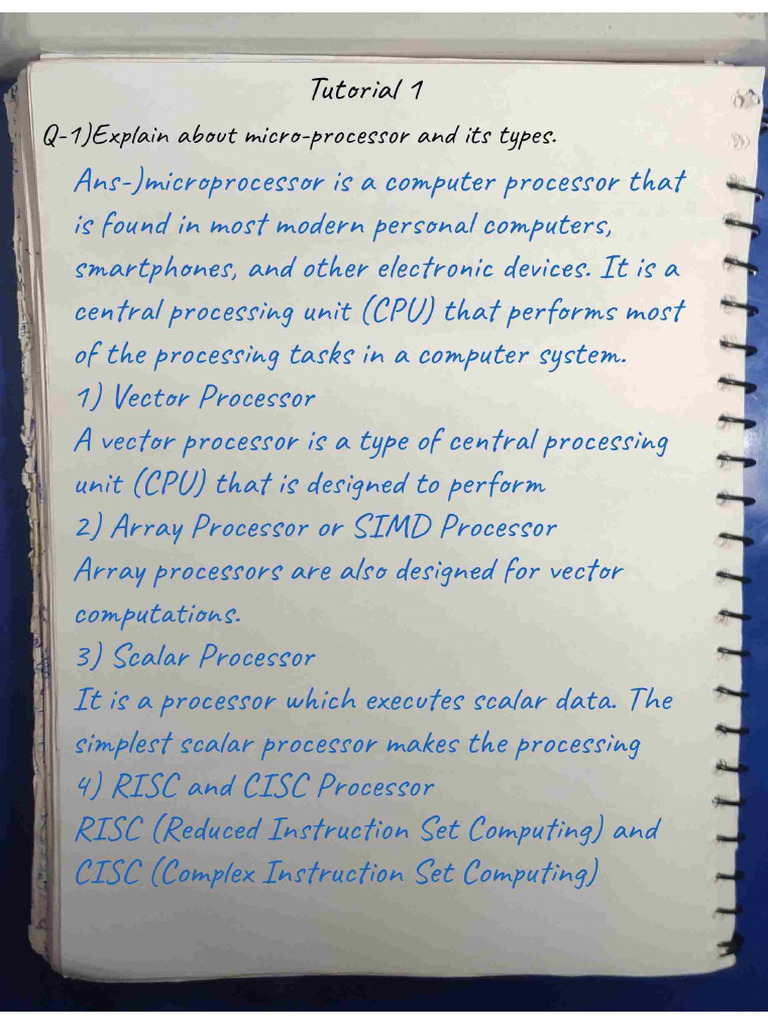 Tutorial 1
Q-1)Explain about micro-processor and its types.
Ans-)microprocessor is a computer processor that
is found in most modern personal computers,
smartphones, and other electronic devices. It is a
central processing unit (CPU) that performs most
of the processing tasks in a computer system.
1) Vector Processor
A vector processor is a type of central processing
unit (CPU) that is designed to perform
2) Array Processor or SIMD Processor
Array processors are also designed for vector
computations.
3) Scalar Processor
It is a processor which executes scalar data. The
simplest scalar processor makes the processing
4) RISC and CISC Processor
RISC (Reduced Instruction Set Computing) and
CISC (Complex Instruction Set Computing)